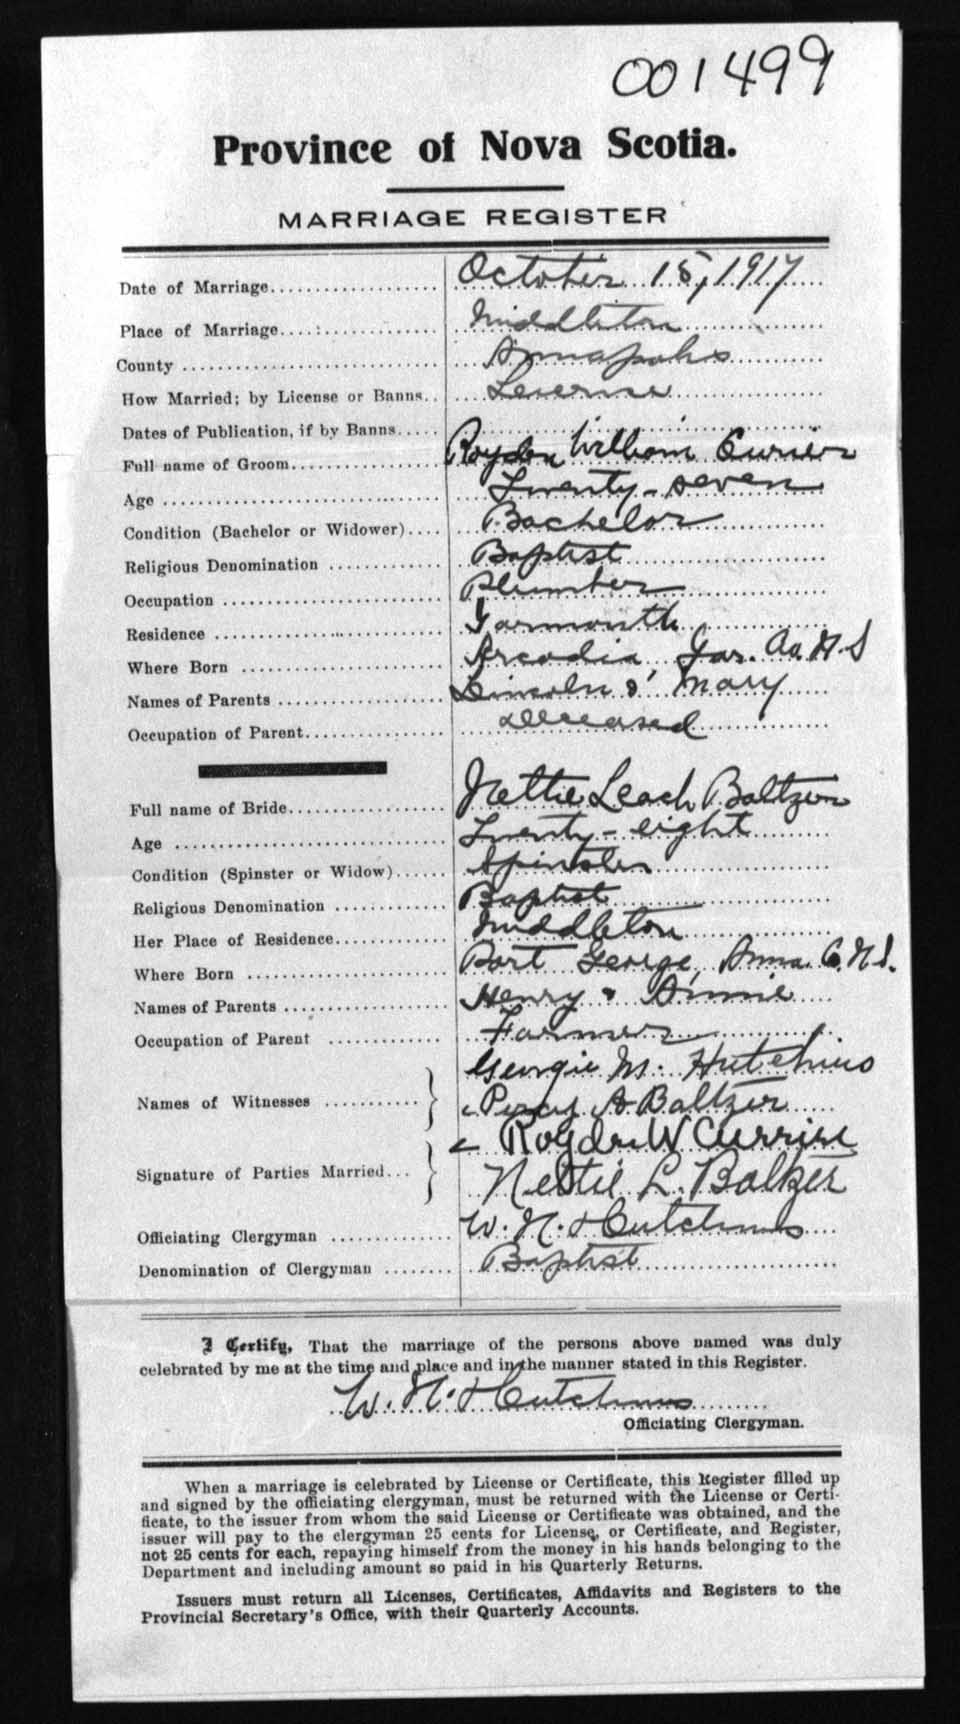 001499
Province of Nova Scotia.
MARRIAGE REGISTER
Date of Marriage October 15, 1917
Place of Marriage Middleton
County Annapolis
How Married; by License or Banns License
Dates of Publication, if by Banns
Full name of Groom Royden William Currier
Age Twenty-seven
Condition (Bachelor or Widower) Bachelor
Religious Denomination Baptist
Occupation Plumber
Residence Yarmouth
Where Born Arcadia, Yar. Co. N.S
Names of Parents Lincoln & Mary
Occupation of Parent deceased
Full name of Bride Nettie Leach Baltzer
Age Twenty-eight
Condition (Spinster or Widow) Spinster
Religious Denomination Baptist
Her Place of Residence Middleton
Where Born Port George, Anna. Co. N.S.
Names of Parents Henry & Annie
Occupation of Parent Farmer
Georgie M. Hutchins
Names of Witnesses Percy A Baltzer
Royden W Currier
Signature of Parties Married Nettie L. Baltzer
Officiating Clergyman W. N. Hutchins
Denomination of Clergyman Baptist
I Certify, That the marriage of the persons above named was duly
celebrated by me at the time and place and in the manner stated in this Register.
W. N. Hutchins
Officiating Clergyman.
When a marriage is celebrated by License or Certificate, this Register filled up
and signed by the officiating clergyman, must be returned with the License or Certi-
ficate, to the issuer from whom the said License or Certificate was obtained, and the
issuer will pay to the clergyman 25 cents for License, or Certificate, and Register,
not 25 cents for each, repaying himself from the money in his hands belonging to the
Department and including amount so paid in his Quarterly Returns.
Issuers must return all Licenses, Certificates, Affidavits and Registers to the
Provincial Secretary's Office, with their Quarterly Accounts.